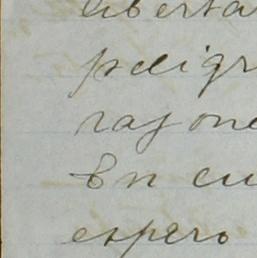 liberta
peligr
razone
En cu
espero